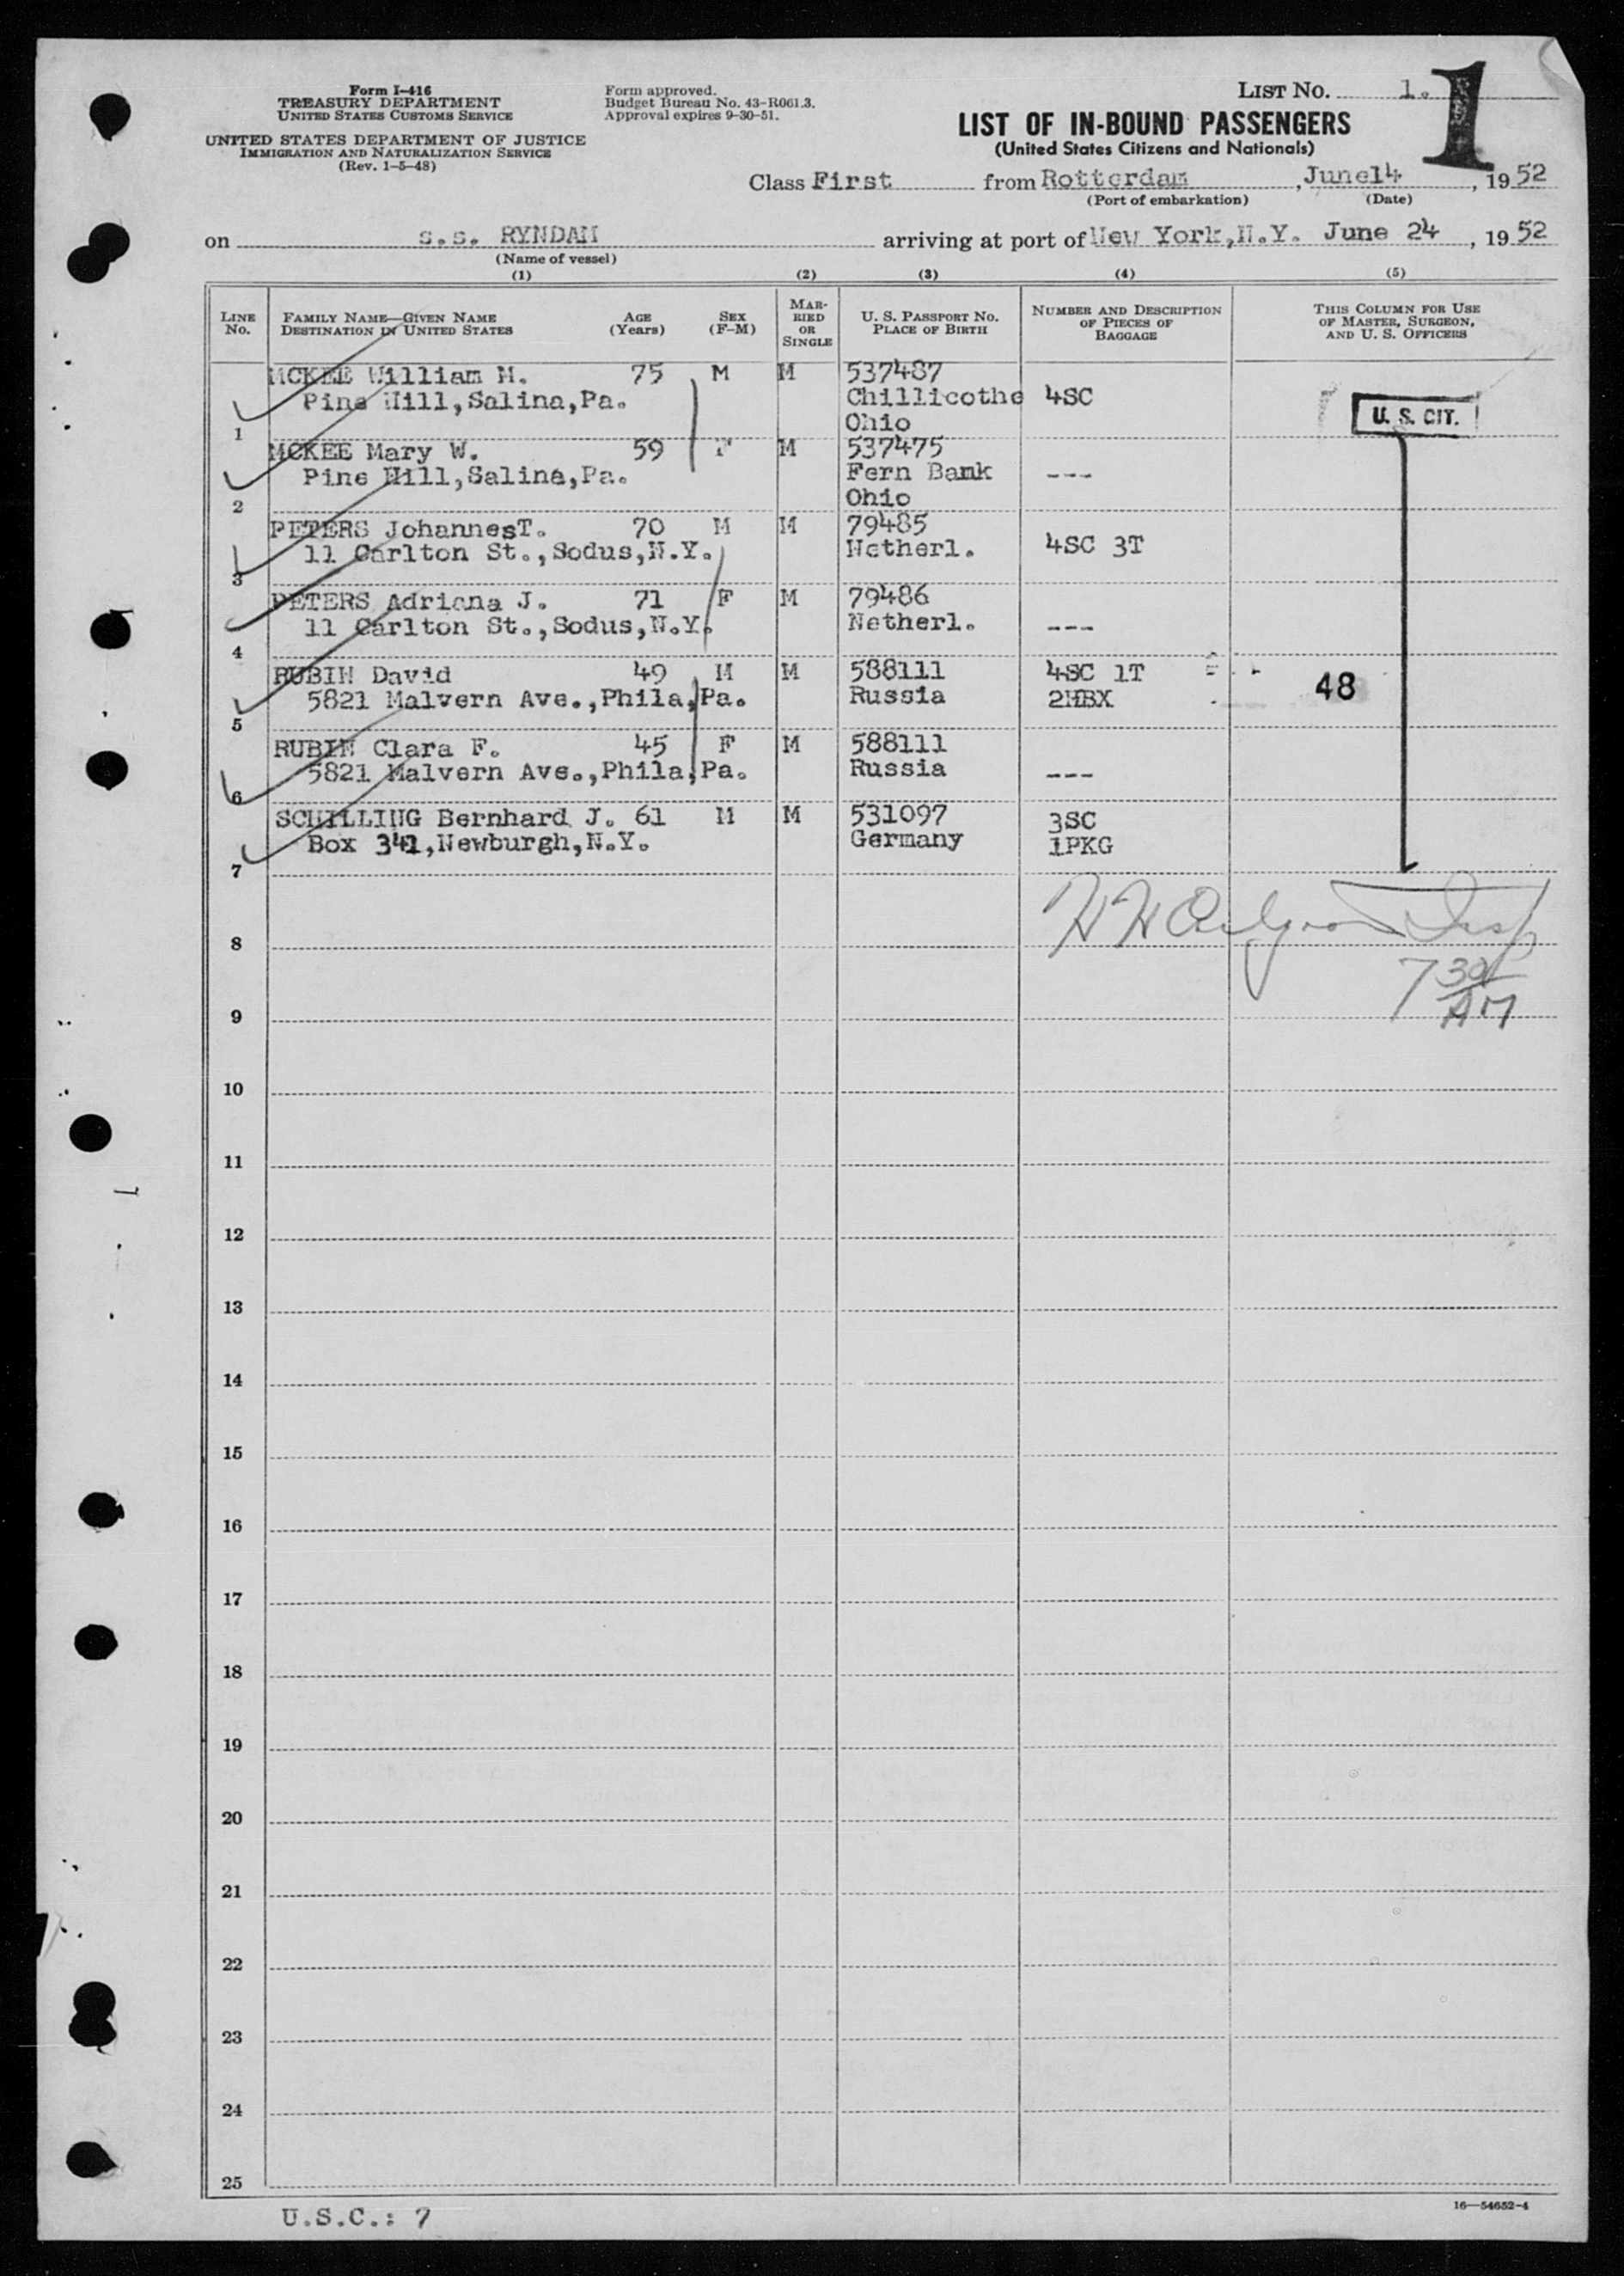 Form I-416
TREASURY DEPARTMENT
UNITED STATES CUSTOMS SERVICE
UNITED STATES DEPARTMENT OF JUSTICE
IMMIGRATION AND NATURALIZATION SERVICE
(Rev. 1-5-48)
Form approved.
Budget Bureau No. 43-R061.3.
Approval expires 9-30-51.
LIST NO. 1.
1
LIST OF IN-BOUND PASSENGERS
(United States Citizens and Nationals)
Class First from Rotterdam, June14, 1952
(Port of embarkation) (Date)
on s.s. RYNDAM arriving at port of New York,N.Y. June 24, 1952
(Name of vessel)
(1) (2) (3) (4) (5)
LINE No.
FAMILY NAME—GIVEN NAME
DESTINATION IN UNITED STATES
AGE (Years)
SEX (F-M)
MARRIED OR SINGLE
U. S. PASSPORT NO.
PLACE OF BIRTH
NUMBER AND DESCRIPTION OF PIECES OF BAGGAGE
THIS COLUMN FOR USE OF MASTER, SURGEON, AND U. S. OFFICERS
MCKEE William M. 75 M M 537487
Pine Hill,Salina,Pa. Chillicothe 4SC
1 Ohio
U. S. CIT.
MCKEE Mary W. 59 F M 537475
Pine Hill,Salina,Pa. Fern Bank ---
2 Ohio
PETERS JohannesT. 70 M M 79485
11 Carlton St.,Sodus,N.Y. Netherl. 4SC 3T
3
PETERS Adriana J. 71 F M 79486
11 Carlton St.,Sodus,N.Y. Netherl. ---
4
RUBIN David 49 M M 588111 4SC 1T
5821 Malvern Ave.,Phila,Pa. Russia 2HBX
48
5
RUBIN Clara F. 45 F M 588111
5821 Malvern Ave.,Phila,Pa. Russia ---
6
SCHILLING Bernhard J. 61 M M 531097 3SC
Box 341,Newburgh,N.Y. Germany 1PKG
7
8
7 30 AM
9
10
11
12
13
14
15
16
17
18
19
20
21
22
23
24
25
U.S.C.: 7
16—54652-4